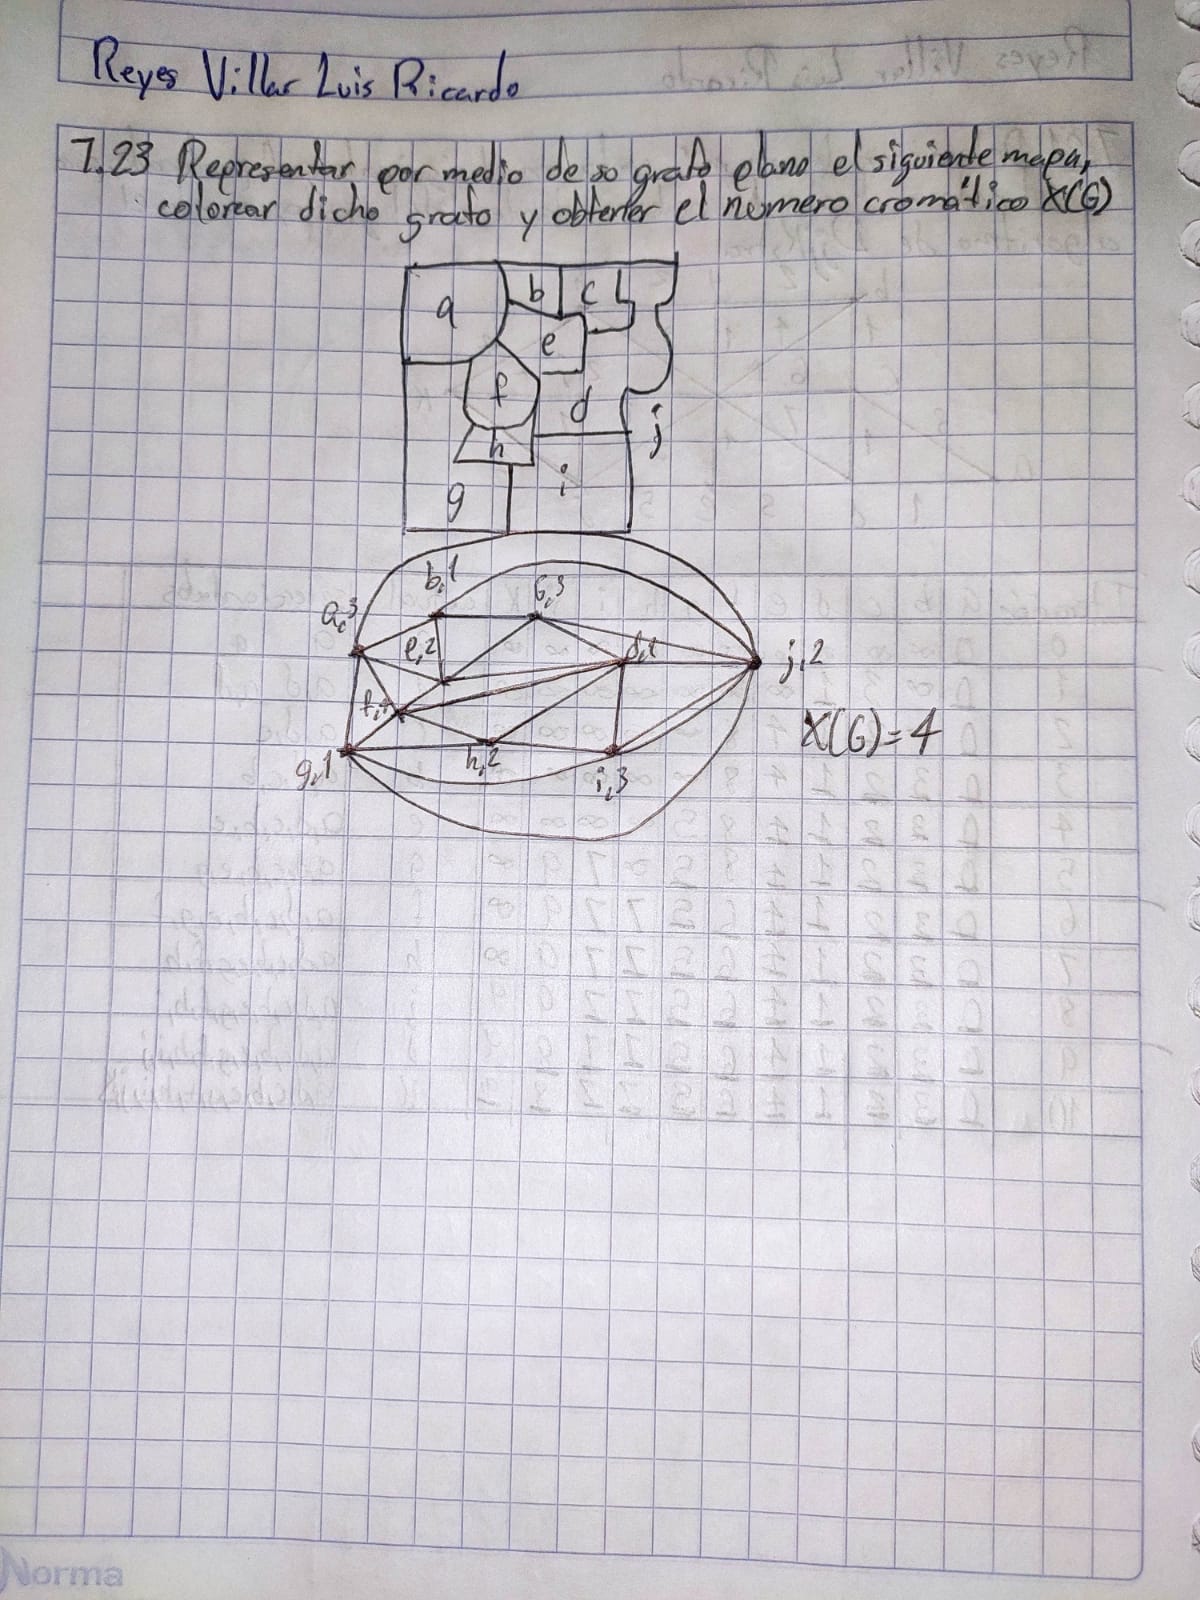 Reyes Villar Luis Ricardo
7.23 Representar por medio de so grafo plano el siguiente mapa,
colorear dicho grafo y obtener el número cromático X(G)
a
b
c
e
f
d
j
h
i
g
b,1
a,3
6,3
e,2
d,4
j,2
f,4
X(G)=4
h,2
g,1
i,3
Norma